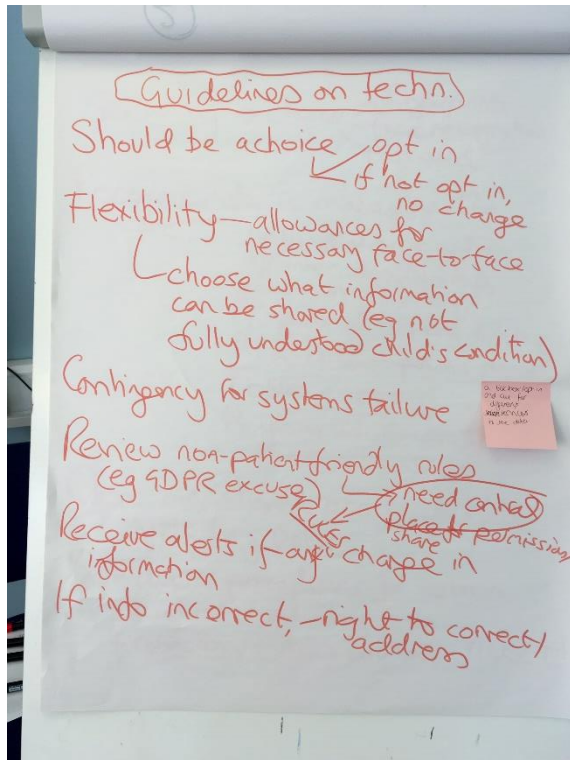 Guidelines on techn.
Should be a choice opt in
if not opt in,
no change
Flexibility — allowances for
necessary face-to-face
choose what information
can be shared (eg not
fully understood child's condition)
Contingency for systems failure
opt in
and out for
different
Review non-patient-friendly rules
(eg GDPR excuse) need central
place to permission
share
Receive alerts if any change in
information
If info incorrect, - right to correct/
address